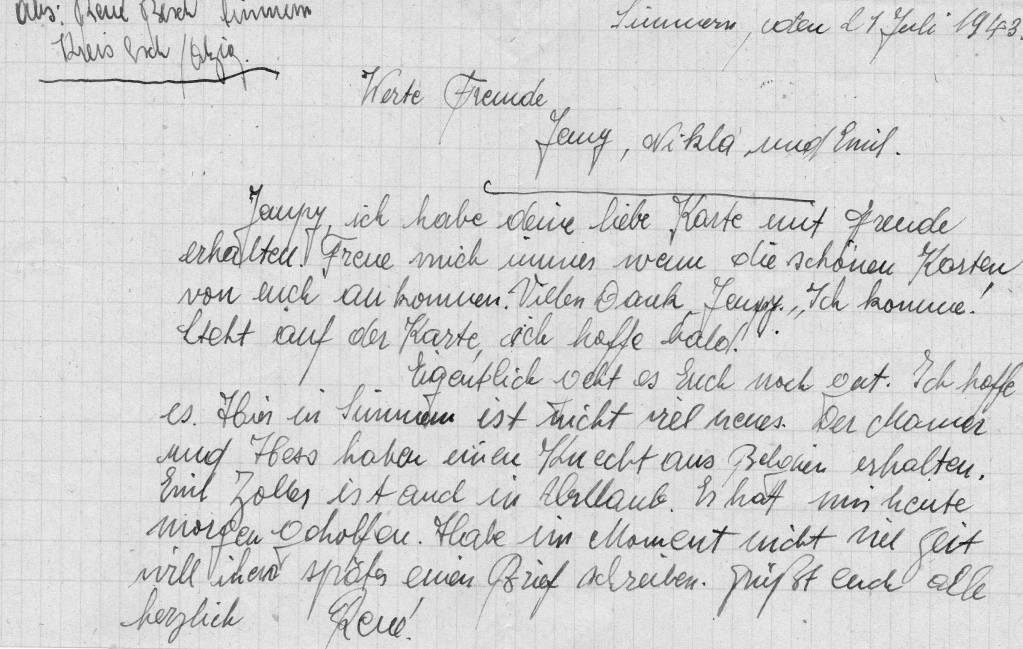 Abs: René Besch Simmern
Kreis Esch / Alzig.
Simmern, den 21 Juli 1943.
Werte Freunde
Jempy, Nikla, und Emil.
Jempy, ich habe deine liebe Karte mit Freude
erhalten. Freue mich immer wenn die schönen Karten
von euch an kommen. Villen Dank Jempy. „Ich komme!
steht auf der Karte, ich hoffe bald!
Eigentlich geht es Euch noch gut. Ich hoffe
es. Hier in Simmern ist nicht viel neues. Der Mamer
und Hess haben einen Knecht aus Belgien erhalten.
Emil Zoller ist auch in Uhrlaub. Er hat mir heute
morgen geholfen. Habe im Moment nicht viel Zeit
will ihnen später einen Brief schreiben. Grüßt euch alle
herzlich René!